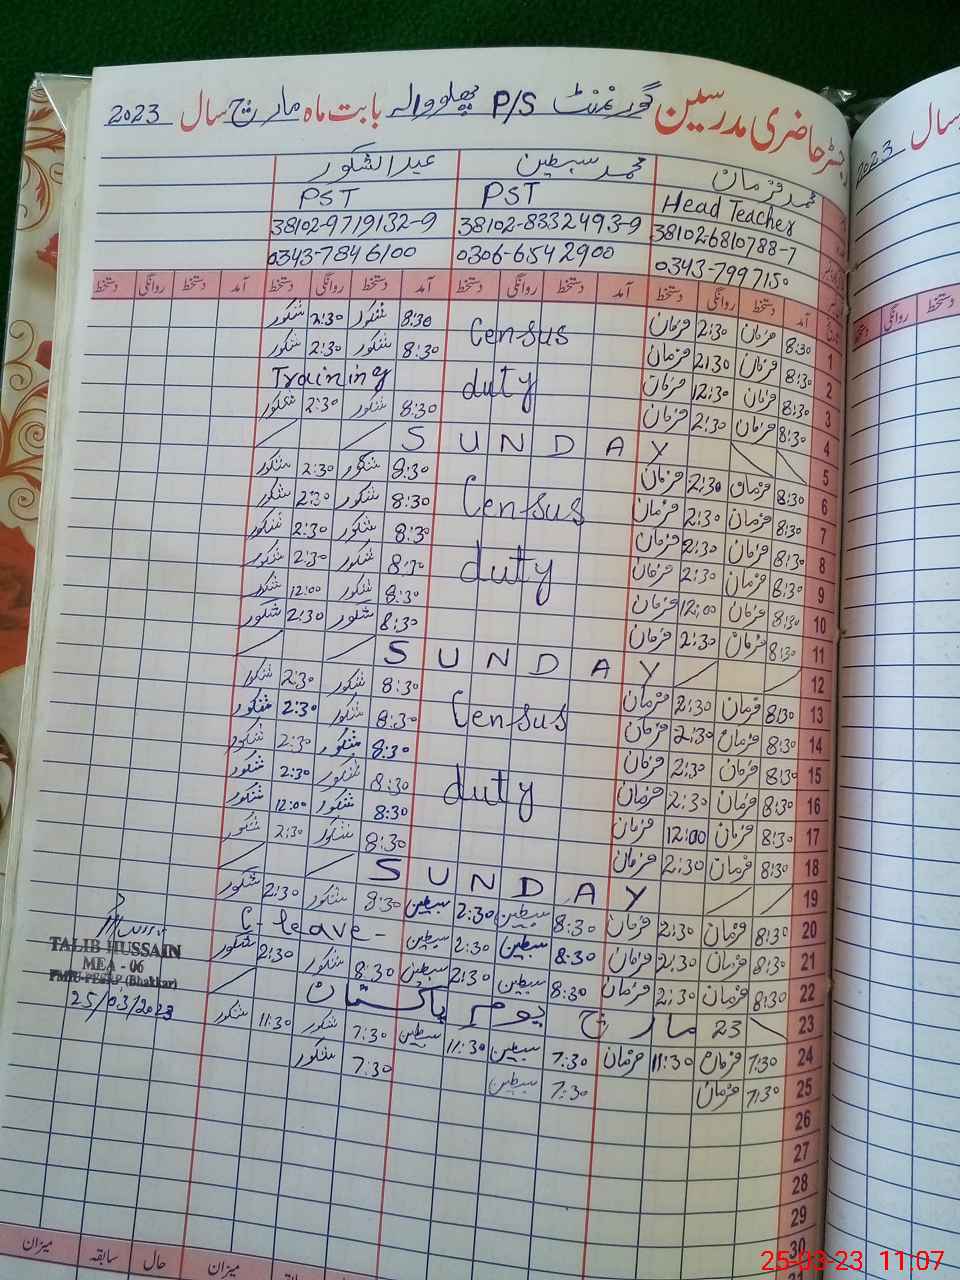 رجسٹر حاضری مدرسین گورنمنٹ P/S پھلووالہ بابت ماہ مارچ سال 2023
محمد فرمان محمد سبطین عبدالشکور
Head Teacher PST PST
38102-6810788-7 38102-8332493-9 38102-9719132-9
0343-7997150 0306-6542900 0343-7846100
آمد دستخط روانگی دستخط آمد دستخط روانگی دستخط آمد دستخط روانگی دستخط آمد دستخط روانگی دستخط
1 8:30 فرمان 2:30 فرمان Census 8:30 شکور 2:30 شکور
2 8:30 فرمان 2:30 فرمان duty 8:30 شکور 2:30 شکور
3 8:30 فرمان 12:30 فرمان Training
4 8:30 فرمان 2:30 فرمان 8:30 شکور 2:30 شکور
5 SUNDAY
6 8:30 فرمان 2:30 فرمان Census 8:30 شکور 2:30 شکور
7 8:30 فرمان 2:30 فرمان 8:30 شکور 2:30 شکور
8 8:30 فرمان 2:30 فرمان duty 8:30 شکور 2:30 شکور
9 8:30 فرمان 2:30 فرمان 8:30 شکور 2:30 شکور
10 8:30 فرمان 12:00 فرمان 8:30 شکور 12:00 شکور
11 8:30 فرمان 2:30 فرمان 8:30 شکور 2:30 شکور
12 SUNDAY
13 8:30 فرمان 2:30 فرمان Census 8:30 شکور 2:30 شکور
14 8:30 فرمان 2:30 فرمان 8:30 شکور 2:30 شکور
15 8:30 فرمان 2:30 فرمان duty 8:30 شکور 2:30 شکور
16 8:30 فرمان 2:30 فرمان 8:30 شکور 2:30 شکور
17 8:30 فرمان 12:00 فرمان 8:30 شکور 12:00 شکور
18 8:30 فرمان 2:30 فرمان 8:30 شکور 2:30 شکور
19 SUNDAY
20 8:30 فرمان 2:30 فرمان 8:30 سبطین 2:30 سبطین 8:30 شکور 2:30 شکور
21 8:30 فرمان 2:30 فرمان 8:30 سبطین 2:30 سبطین C-leave-
22 8:30 فرمان 2:30 فرمان 8:30 سبطین 2:30 سبطین 8:30 شکور 2:30 شکور
23 23 مارچ یوم پاکستان
24 7:30 فرمان 11:30 فرمان 7:30 سبطین 11:30 سبطین 7:30 شکور 11:30 شکور
25 7:30 فرمان 7:30 سبطین 7:30 شکور
26
27
28
29
30
31
TALIB HUSSAIN
MEA - 06
PMIU-PESRP (Bhakkar)
25/03/2023
میزان حال سابقہ میزان
سال 2023
دستخط روانگی دستخط
25-03-23 11:07